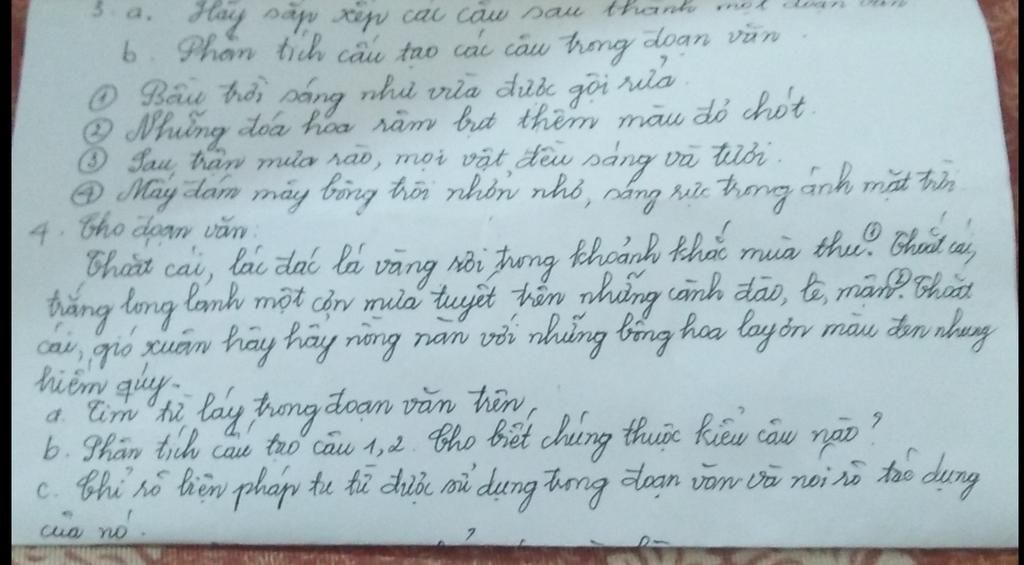 3. a. Hãy sắp xếp các câu sau thành một đoạn văn
b. Phân tích cấu tạo các câu trong đoạn văn.
① Bầu trời sáng như vừa được gội rửa.
② Những đóa hoa râm bụt thêm màu đỏ chót.
③ Sau trận mưa rào, mọi vật đều sáng và tươi.
④ Mấy đám mây bông trôi nhởn nhơ, sáng rực trong ánh mặt trời
4. Cho đoạn văn:
Thoắt cái, lác đác lá vàng rơi trong khoảnh khắc mùa thu.① Thoắt cái,
trắng long lanh một cơn mưa tuyết trên những cành đào, lê, mận②. Thoắt
cái, gió xuân hây hẩy nồng nàn với những bông hoa lay ơn màu đen nhung
hiếm qúy.
a. Tìm từ láy trong đoạn văn trên,
b. Phân tích cấu tạo câu 1,2. Cho biết chúng thuộc kiểu câu nào?
c. Chỉ rõ biện pháp tu từ được sử dụng trong đoạn văn và nói rõ tác dụng
của nó.